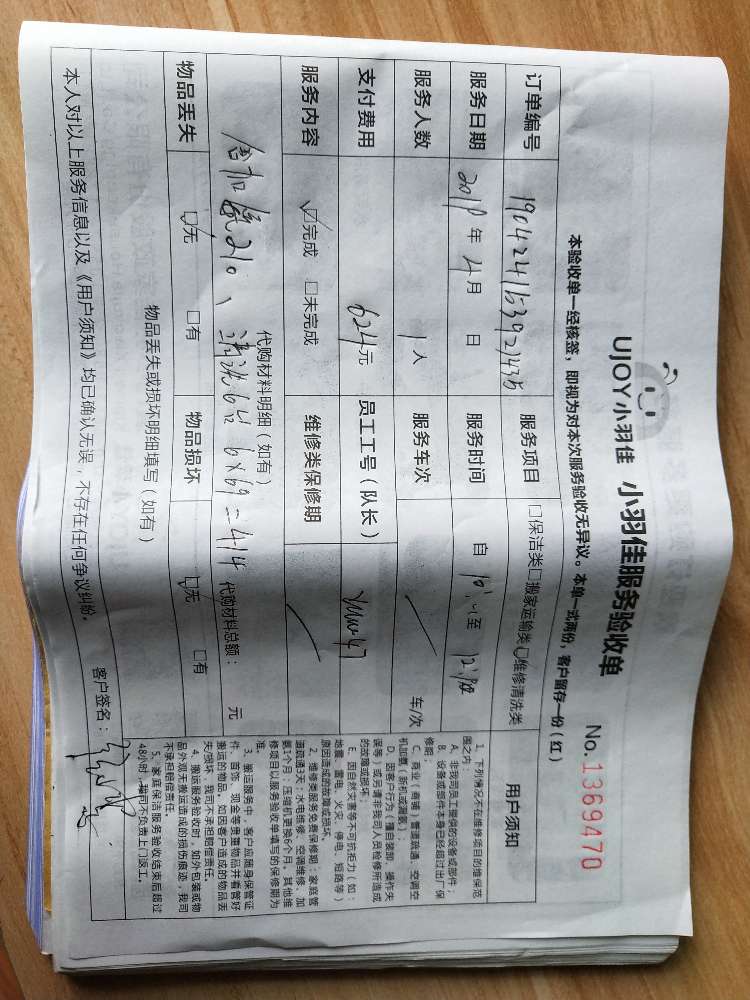 UJOY小羽佳 小羽佳服务验收单 No.1369470
本验收单一经核签,即视为对本次服务验收无异议。本单一式两份,客户留存一份(红)
订单编号 服务项目 □保洁类□搬家运输类☑维修清洗类
服务日期 2019年4月 日 服务时间 自 至
服务人数 1人 服务车次 车/次
支付费用 624元 员工工号(队长)
服务内容 ☑完成 □未完成 维修类保修期
代购材料明细(如有)
210、清洗6台 6×69=414 代购材料总额: 元
物品丢失 ☑无 □有 物品损坏 ☑无 □有
物品丢失或损坏明细填写(如有)
本人对以上服务信息以及《用户须知》均已确认无误,不存在任何争议纠纷。
客户签名:
用户须知
1、下列情况不在维修项目的维保范
围之内:
A、非我司员工提供的设备或部件;
B、设备或部件本身已经超过出厂保
修期;
C、商业(商铺)管道疏通、空调空
机加氨、新机或漏氨);
D、因客户行为(擅自装卸、操作失
误等)或另请非我司人员检修所造成
的故障或损坏;
E、因自然灾害等不可抗拒力(如:
地震、雷电、火灾、停电、短路等)
原因造成的故障或损坏。
2、维修类服务免费保修期:家庭管
道疏通3天;水电维修、空调维修、加
氨1个月;压缩机更换6个月,其他维
修项目以服务验收单填写的保修期为
准。
3、搬运服务中,客户应随身保管证
件、首饰、现金等贵重物品并看管好
搬运的物品,如因客户造成的物品丢
失/损坏,我司不承担赔偿责任。
4、搬运服务验收时,如外包装或物
品外观无搬运造成的损伤痕迹,我司
不承担赔偿责任。
5、家庭保洁服务验收结束后超过
48小时,我司不负责上门返工。